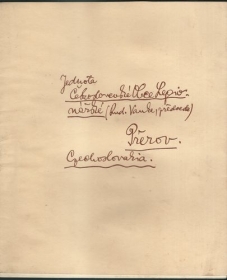 Jednota
Československé Obce Legio-
nářské (Rud. Vaněk, předseda)
Přerov.
Czechoslovakia.